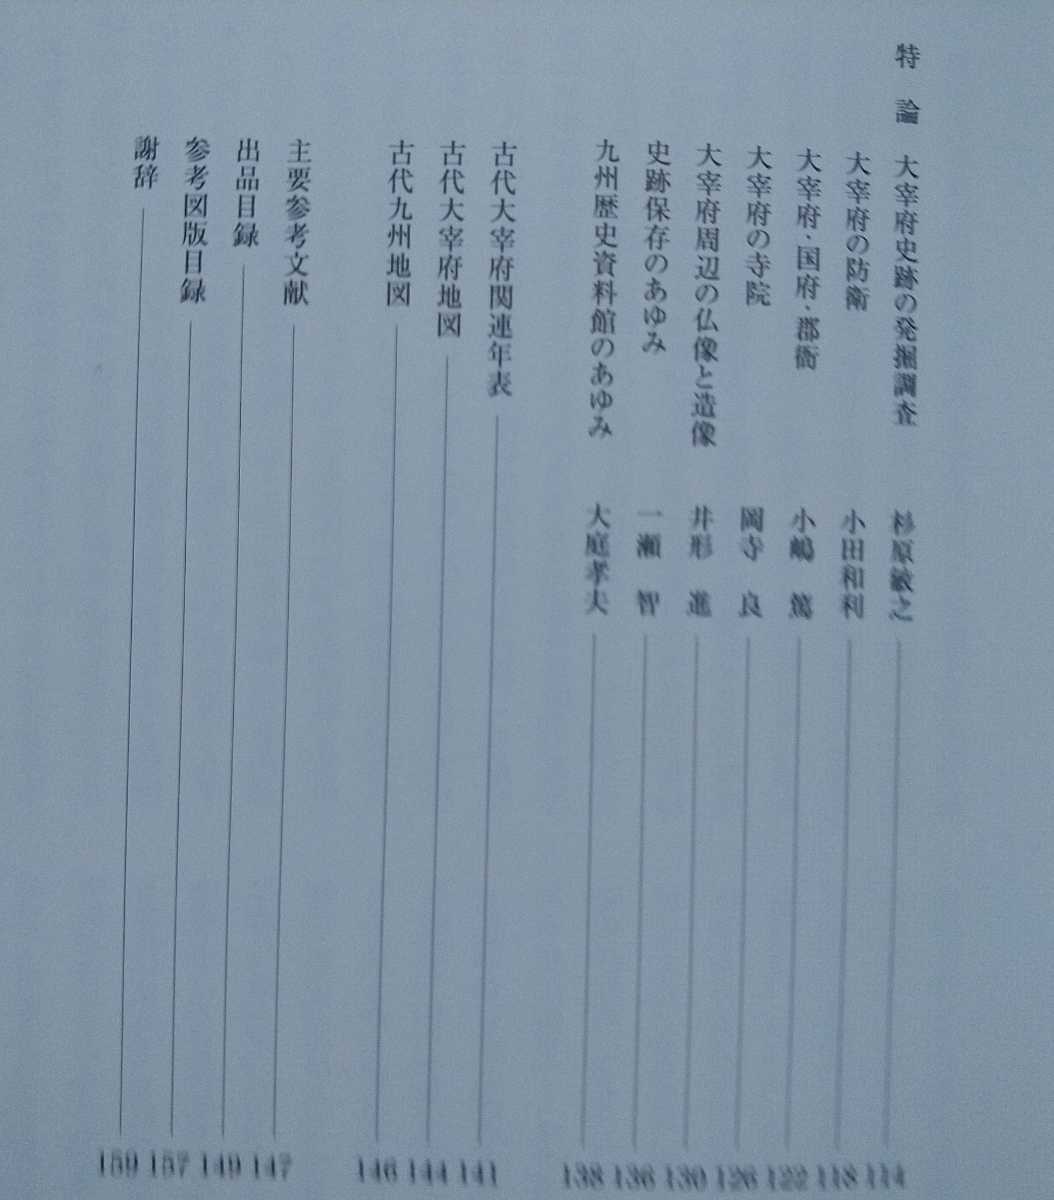 特論 大宰府史跡の発掘調査 杉原敏之 114
大宰府の防衛 小田和利 118
大宰府・国府・郡衙 小嶋 篤 122
大宰府の寺院 岡寺 良 126
大宰府周辺の仏像と造像 井形 進 130
史跡保存のあゆみ 一瀬 智 136
九州歴史資料館のあゆみ 大庭孝夫 138
古代大宰府関連年表 141
古代大宰府地図 144
古代九州地図 146
主要参考文献 147
出品目録 149
参考図版目録 157
謝辞 159